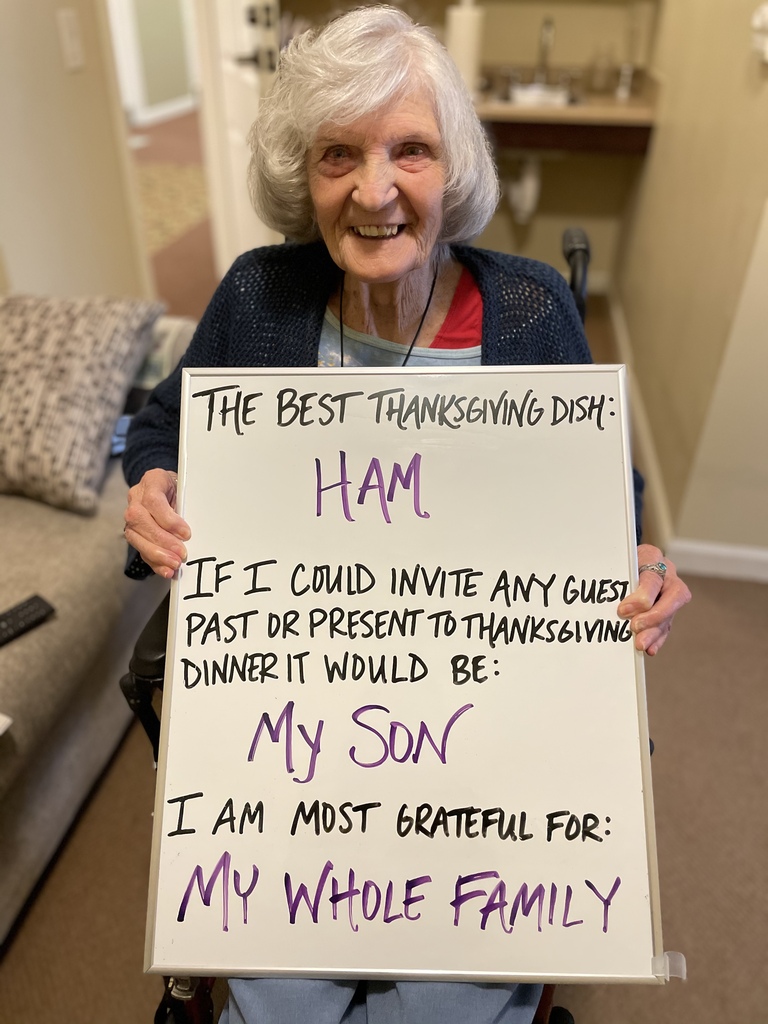 THE BEST THANKSGIVING DISH:
HAM
IF I COULD INVITE ANY GUEST
PAST OR PRESENT TO THANKSGIVING
DINNER IT WOULD BE:
My SON
I AM MOST GRATEFUL FOR:
MY WHOLE FAMILY